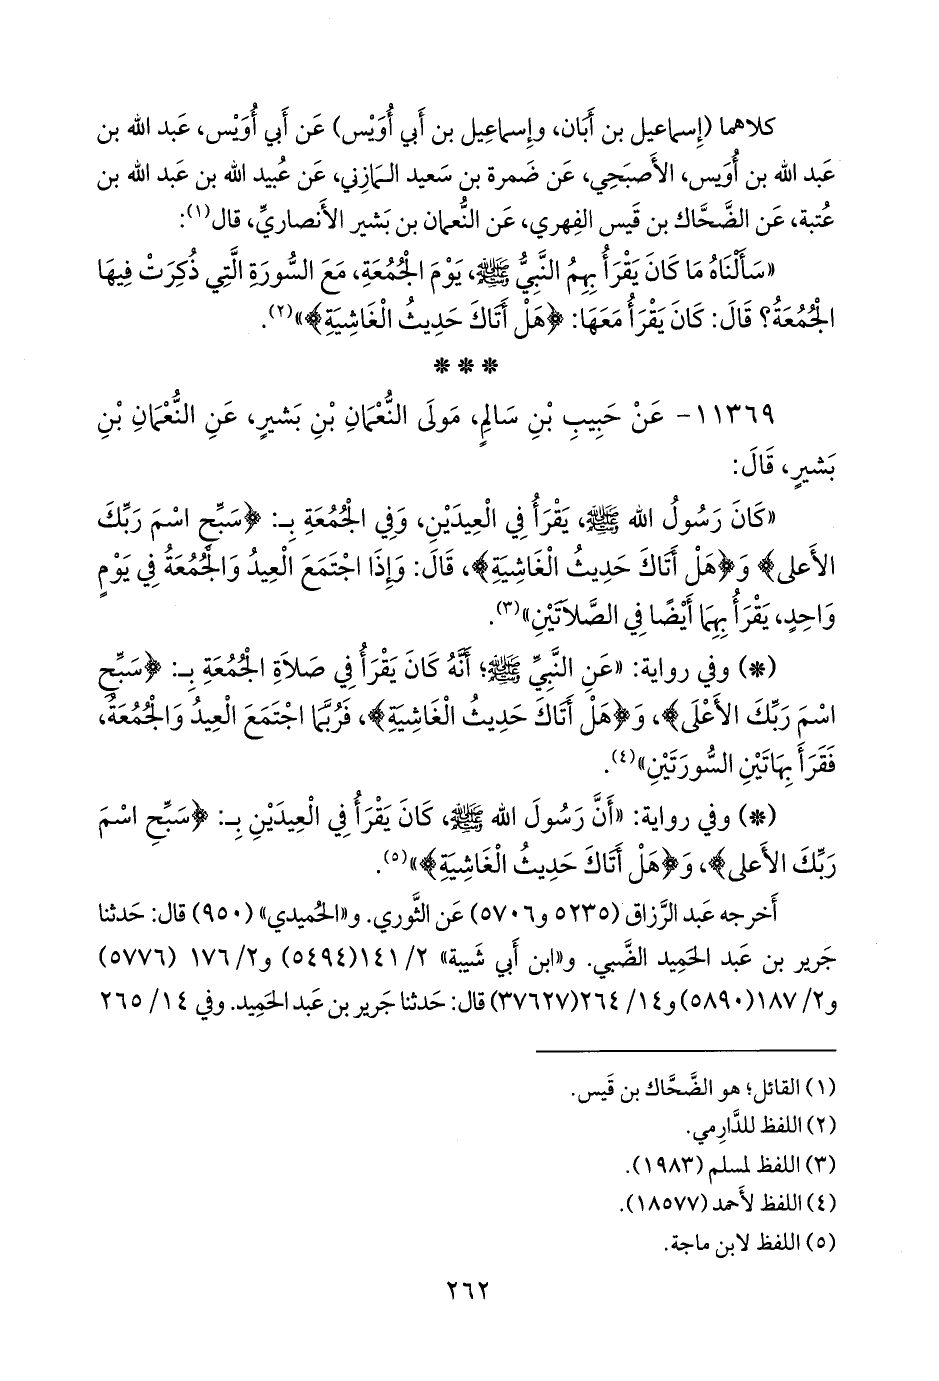 كلاهما (إسماعيل بن أَبَان، وإِسماعِيل بن أَبي أُوَيْس) عَن أَبي أُوَيْس، عَبد الله بن
عَبد الله بن أُوَيس، الأَصبَحِي، عَن ضَمرة بن سَعيد الـمَازِني، عَن عُبيد الله بن عَبد الله بن
عُتبة، عَن الضَّحَّاك بن قَيس الفِهري، عَن النُّعمان بن بَشير الأَنصاريِّ، قال(١):
«سَأَلْنَاهُ مَا كَانَ يَقْرَأُ بِهِمُ النَّبِيُّ ﷺ، يَوْمَ الْجُمُعَةِ، مَعَ السُّورَةِ الَّتِي ذُكِرَتْ فِيهَا
الْجُمُعَةُ؟ قَالَ: كَانَ يَقْرَأُ مَعَهَا: ﴿هَلْ أَتَاكَ حَدِيثُ الْغَاشِيَةِ﴾»(٢).
* * *
١١٣٦٩- عَنْ حَبِيبِ بْنِ سَالِمٍ، مَولَى النُّعْمَانِ بْنِ بَشيرٍ، عَنِ النُّعْمَانِ بْنِ
بَشيرٍ، قَالَ:
«كَانَ رَسُولُ الله ﷺ، يَقْرَأُ فِي الْعِيدَيْنِ، وَفِي الْجُمُعَةِ بِـ: ﴿سَبِّحِ اسْمَ رَبِّكَ
الأَعلى﴾ وَ﴿هَلْ أَتَاكَ حَدِيثُ الْغَاشِيَةِ﴾، قَالَ: وَإِذَا اجْتَمَعَ الْعِيدُ وَالْجُمُعَةُ فِي يَوْمٍ
وَاحِدٍ، يَقْرَأُ بِهِمَا أَيْضًا فِي الصَّلاَتَيْنِ»(٣).
(*) وفي رواية: «عَنِ النَّبِيِّ ﷺ؛ أَنَّهُ كَانَ يَقْرَأُ فِي صَلاَةِ الْجُمُعَةِ بِـ: ﴿سَبِّحِ
اسْمَ رَبِّكَ الأَعْلَى﴾، وَ﴿هَلْ أَتَاكَ حَدِيثُ الْغَاشِيَةِ﴾، فَرُبَّمَا اجْتَمَعَ الْعِيدُ وَالْجُمُعَةُ،
فَقَرَأَ بِهَاتَيْنِ السُّورَتَيْنِ»(٤).
(*) وفي رواية: «أَنَّ رَسُولَ الله ﷺ، كَانَ يَقْرَأُ فِي الْعِيدَيْنِ بِـ: ﴿سَبِّحِ اسْمَ
رَبِّكَ الأَعلى﴾، وَ﴿هَلْ أَتَاكَ حَدِيثُ الْغَاشِيَةِ﴾»(٥).
أَخرجه عَبد الرَّزاق (٥٢٣٥ و٥٧٠٦) عَن الثَّوري. و«الحُميدي» (٩٥٠) قال: حَدثنا
جَرير بن عَبد الحَمِيد الضَّبي. و«ابن أَبي شَيبة» ٢/ ١٤١(٥٤٩٤) و٢/ ١٧٦ (٥٧٧٦)
و٢/ ١٨٧(٥٨٩٠) و١٤/ ٢٦٤(٣٧٦٢٧) قال: حَدثنا جَرير بن عَبد الحَمِيد. وفي ١٤/ ٢٦٥
(١) القائل؛ هو الضَّحَّاك بن قَيس.
(٢) اللفظ للدَّارِمي.
(٣) اللفظ لمسلم (١٩٨٣).
(٤) اللفظ لأَحمد (١٨٥٧٧).
(٥) اللفظ لابن ماجة.
٢٦٢